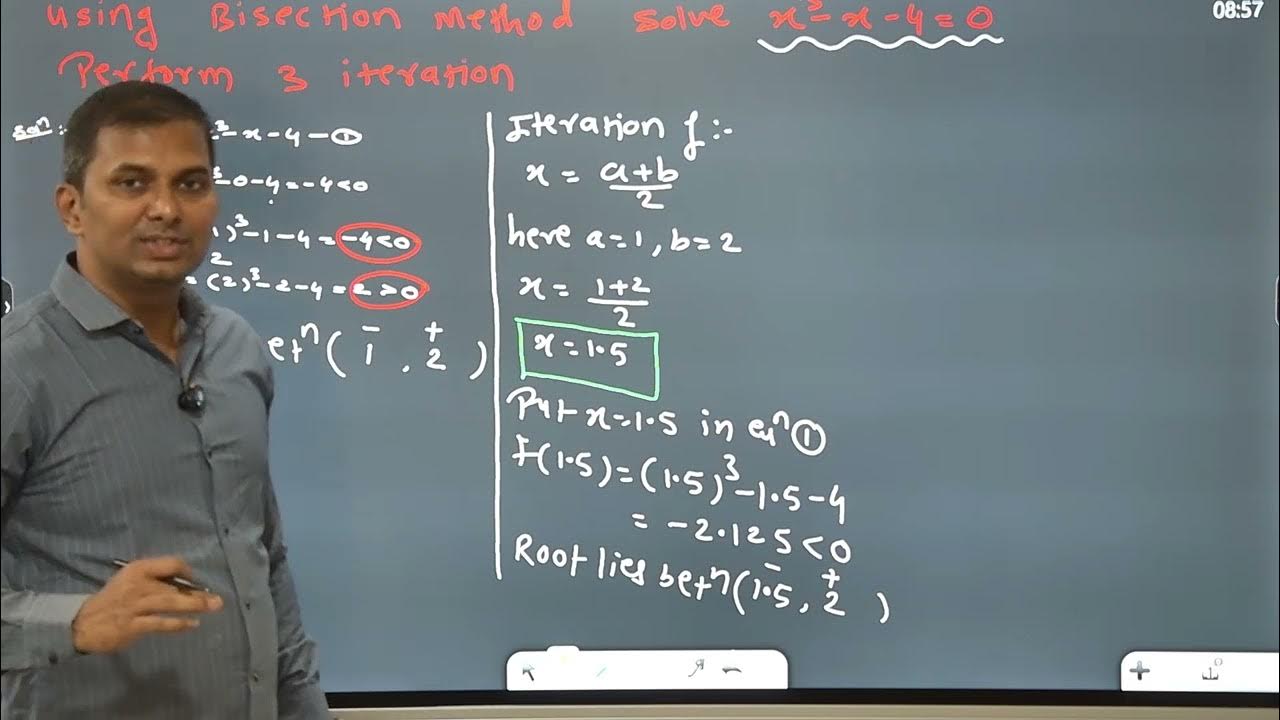 using Bisection method solve x³-x-4=0
Perform 3 iteration
08:57
Solⁿ:
³-x-4-①
³-0-4=-4<0
1)³-1-4=-4<0
2
=(2)³-2-4=2>0
etⁿ(1, 2)
- +
Iteration I:-
x = a+b/2
here a=1, b=2
x = 1+2/2
x=1.5
Put x=1.5 in eqⁿ①
f(1.5)=(1.5)³-1.5-4
= -2.125<0
Root lies betⁿ(1.5, 2)
- +